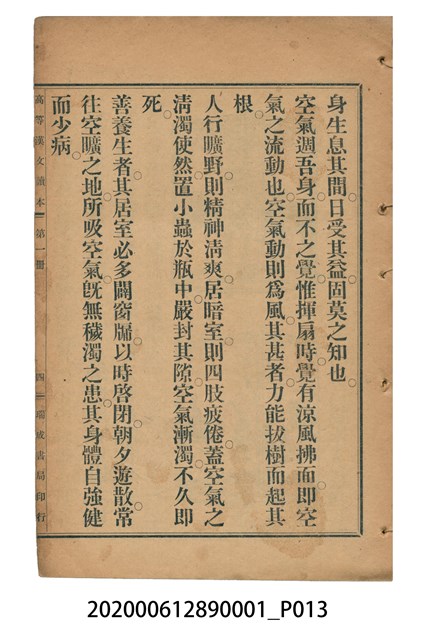 身生息其間。日受其益。固莫之知也。
空氣週吾身而不之覺。惟揮扇時。覺有涼風拂面。即空
氣之流動也。空氣動則爲風。其甚者。力能拔樹而起其
根。
人行曠野。則精神淸爽。居暗室。則四肢疲倦。蓋空氣之
淸濁使然。置小蟲於瓶中。嚴封其隙。空氣漸濁。不久即
死。
善養生者。其居室必多闢窗牖。以時啓閉。朝夕遊散。常
往空曠之地。所吸空氣。旣無穢濁之患。其身體自強健
而少病。
高等漢文讀本 第一冊 四 瑞成書局印行
202000612890001_P013